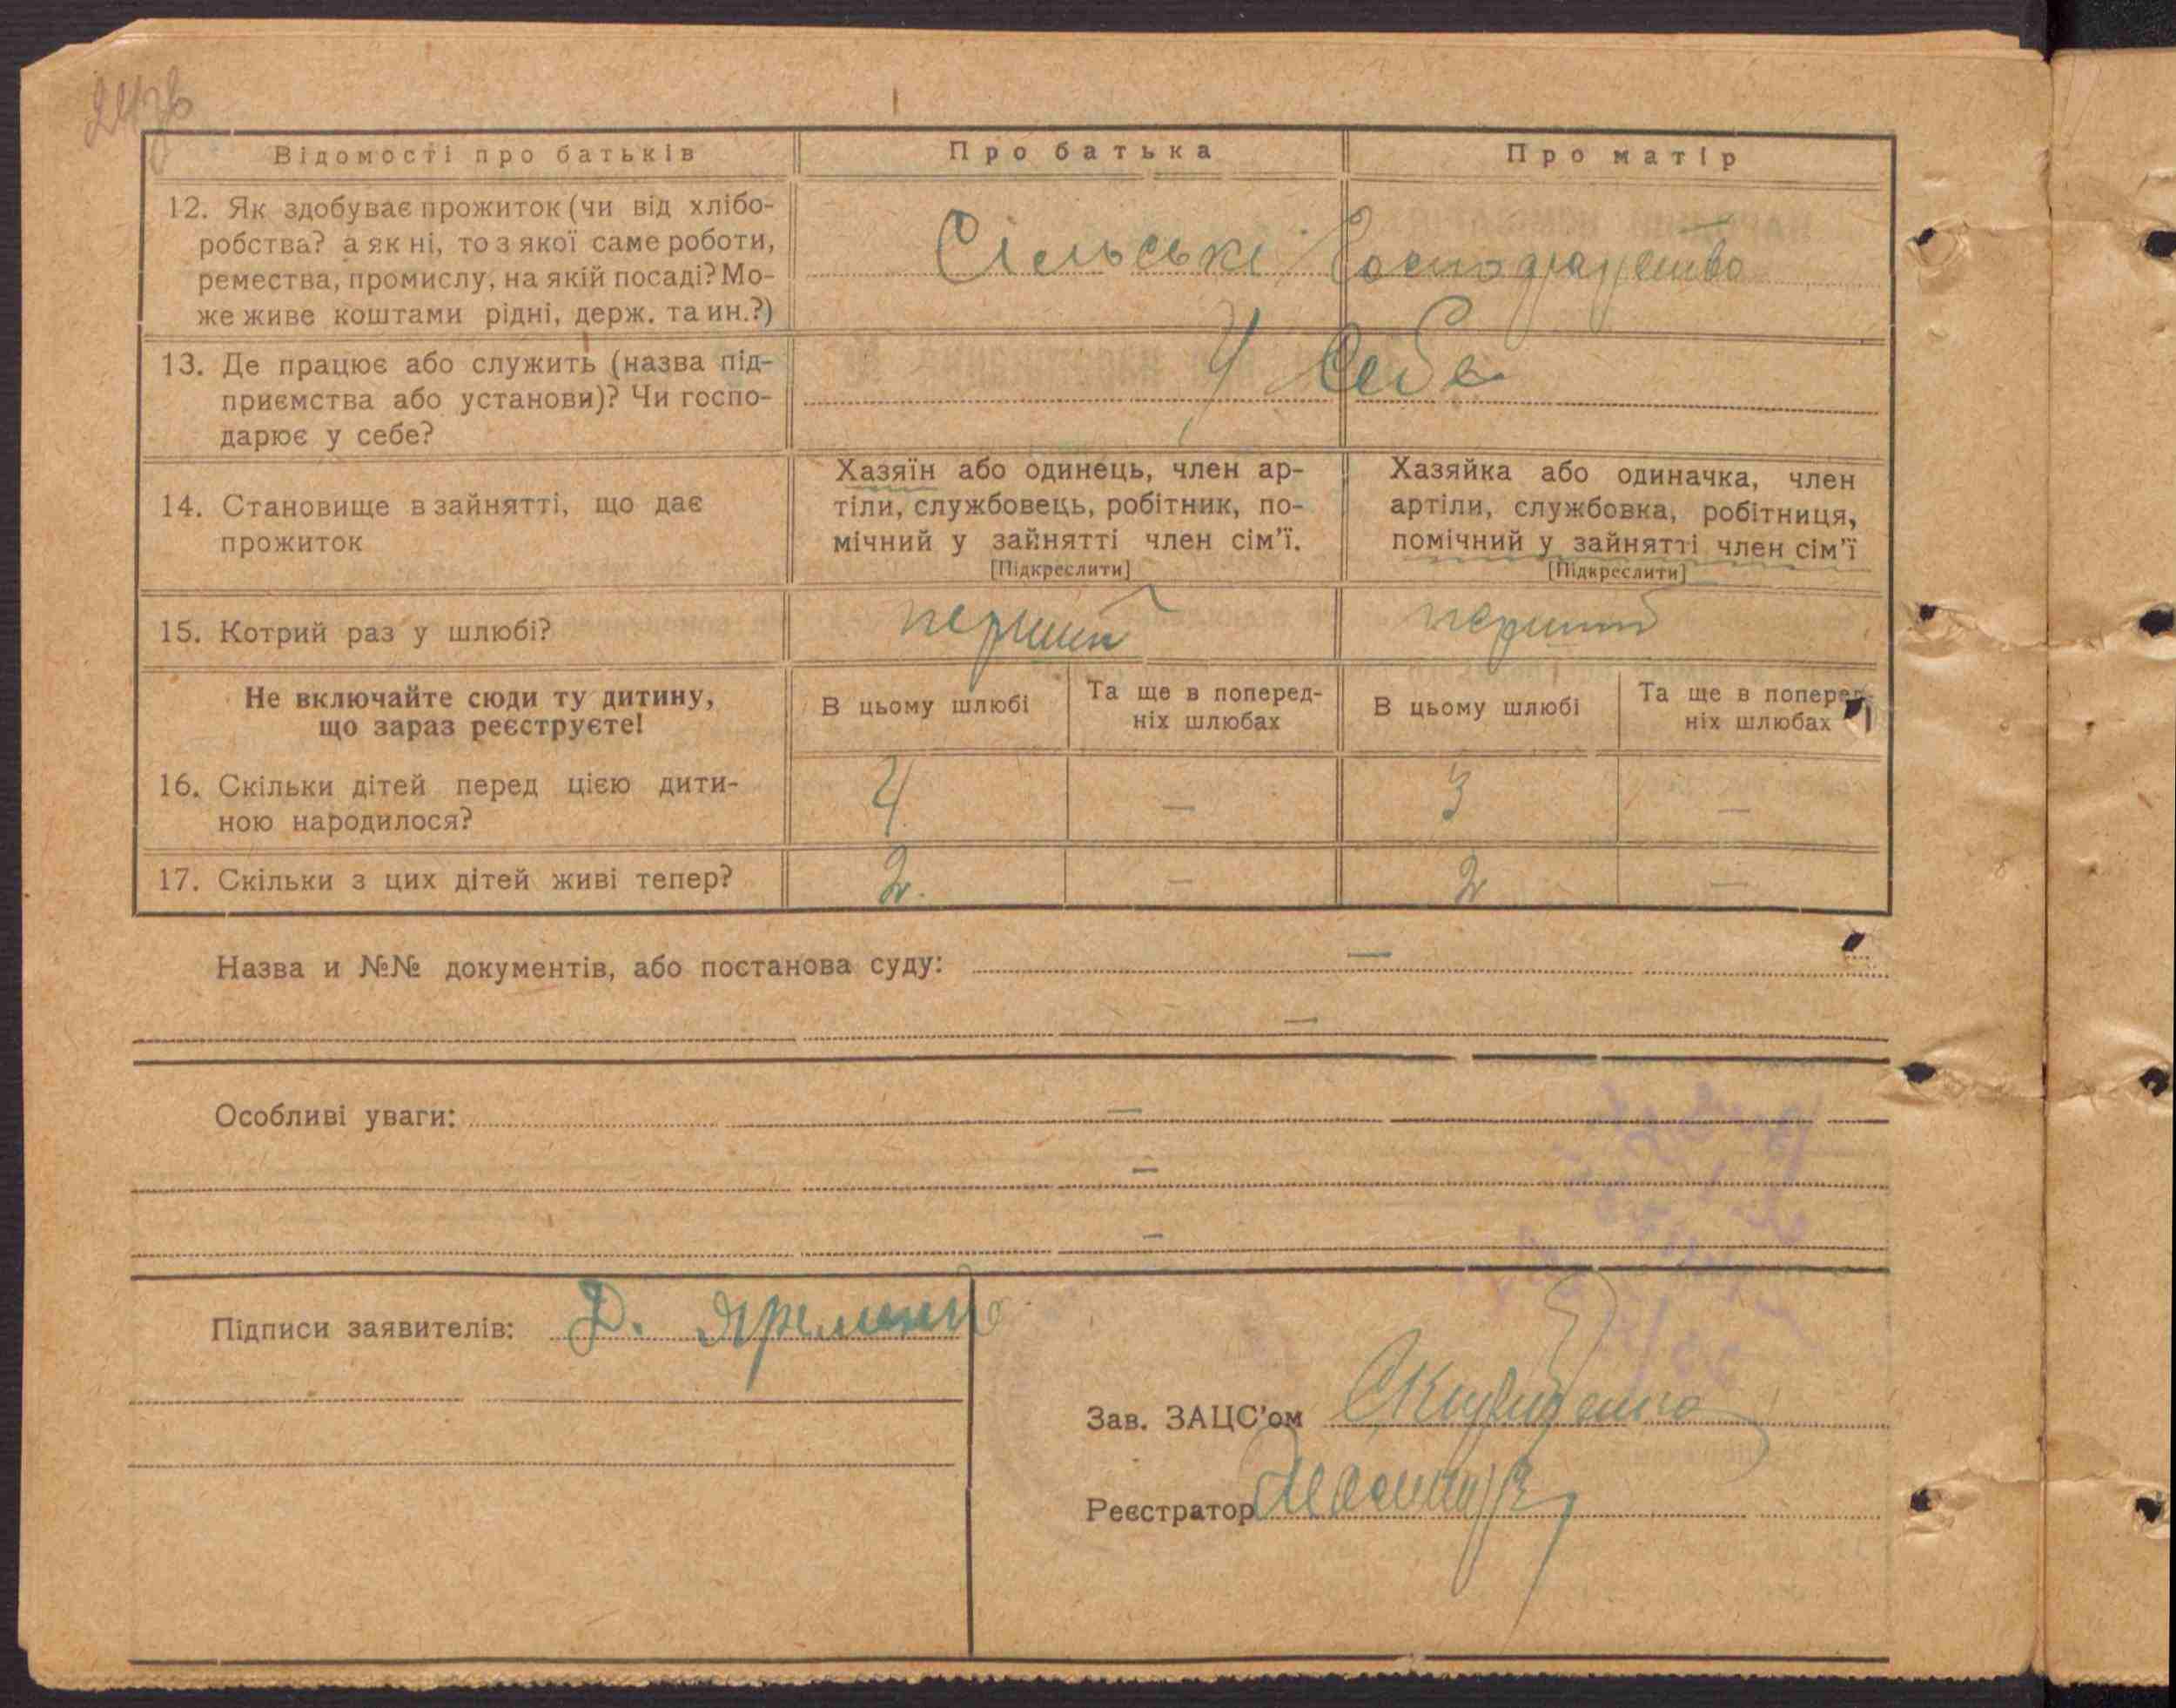 Відомості про батьків
Про батька
Про матір
12. Як здобуває прожиток (чи від хлібо-
робства? а як ні, то з якої саме роботи,
ремества, промислу, на якій посаді? Мо-
же живе коштами рідні, держ. та ин.?)
Сільські Господарство
13. Де працює або служить (назва під-
приємства або установи)? Чи госпо-
дарює у себе?
У себе
14. Становище в зайнятті, що дає
прожиток
Хазяїн або одинець, член ар-
тіли, службовець, робітник, по-
мічний у зайнятті член сім'ї.
[Підкреслити]
Хазяйка або одиначка, член
артіли, службовка, робітниця,
помічний у зайнятті член сім'ї
[Підкреслити]
15. Котрий раз у шлюбі?
перший
перший
Не включайте сюди ту дитину,
що зараз реєструєте!
В цьому шлюбі
Та ще в поперед-
ніх шлюбах
В цьому шлюбі
Та ще в поперед-
ніх шлюбах
16. Скільки дітей перед цією дити-
ною народилося?
4
—
3
—
17. Скільки з цих дітей живі тепер?
2.
—
2
—
Назва и №№ документів, або постанова суду: —
—
Особливі уваги: —
—
—
Підписи заявителів: Д. Яременко
Зав. ЗАЦС'ом
Реєстратор